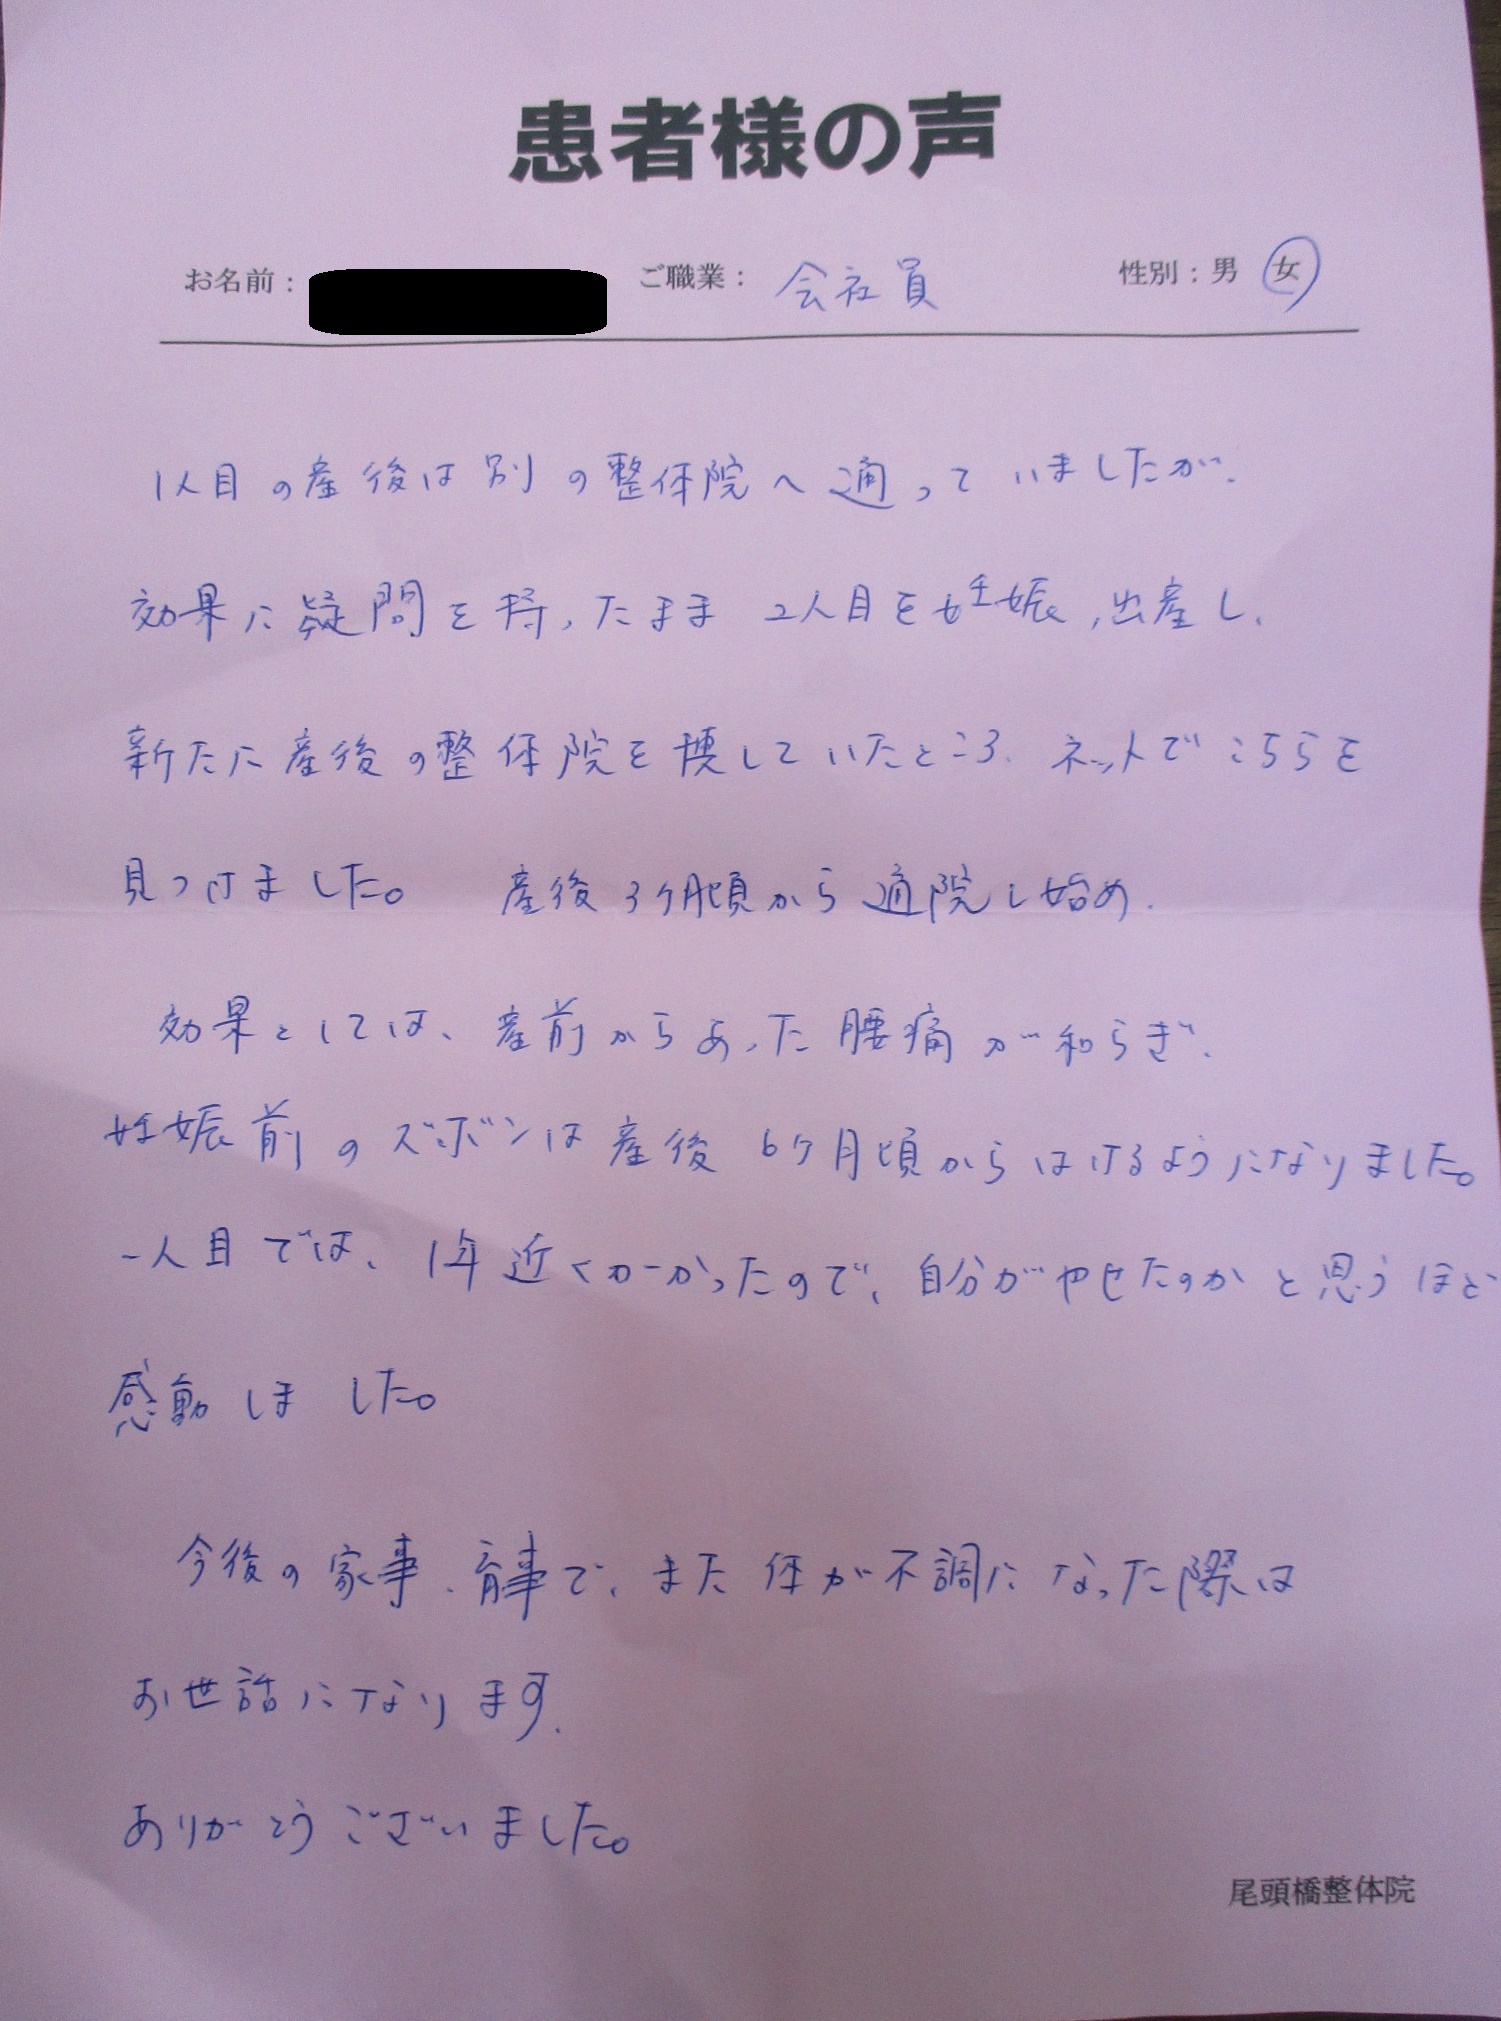 患者様の声
お名前： ご職業： 会社員 性別：男 女
1人目の産後は別の整体院へ通っていましたが、
効果に疑問を持ったまま 2人目を妊娠、出産し、
新たに産後の整体院を捜していたところ、ネットでこちらを
見つけました。 産後3ヶ月頃から通院し始め、
効果としては、産前からあった腰痛が和らぎ、
妊娠前のズボンは産後6ヶ月頃からはけるようになりました。
一人目では、1年近くかかったので、自分がやせたのかと思うほど
感動しました。
今後の家事、育事で、また体が不調になった際は
お世話になります。
ありがとうございました。
尾頭橋整体院